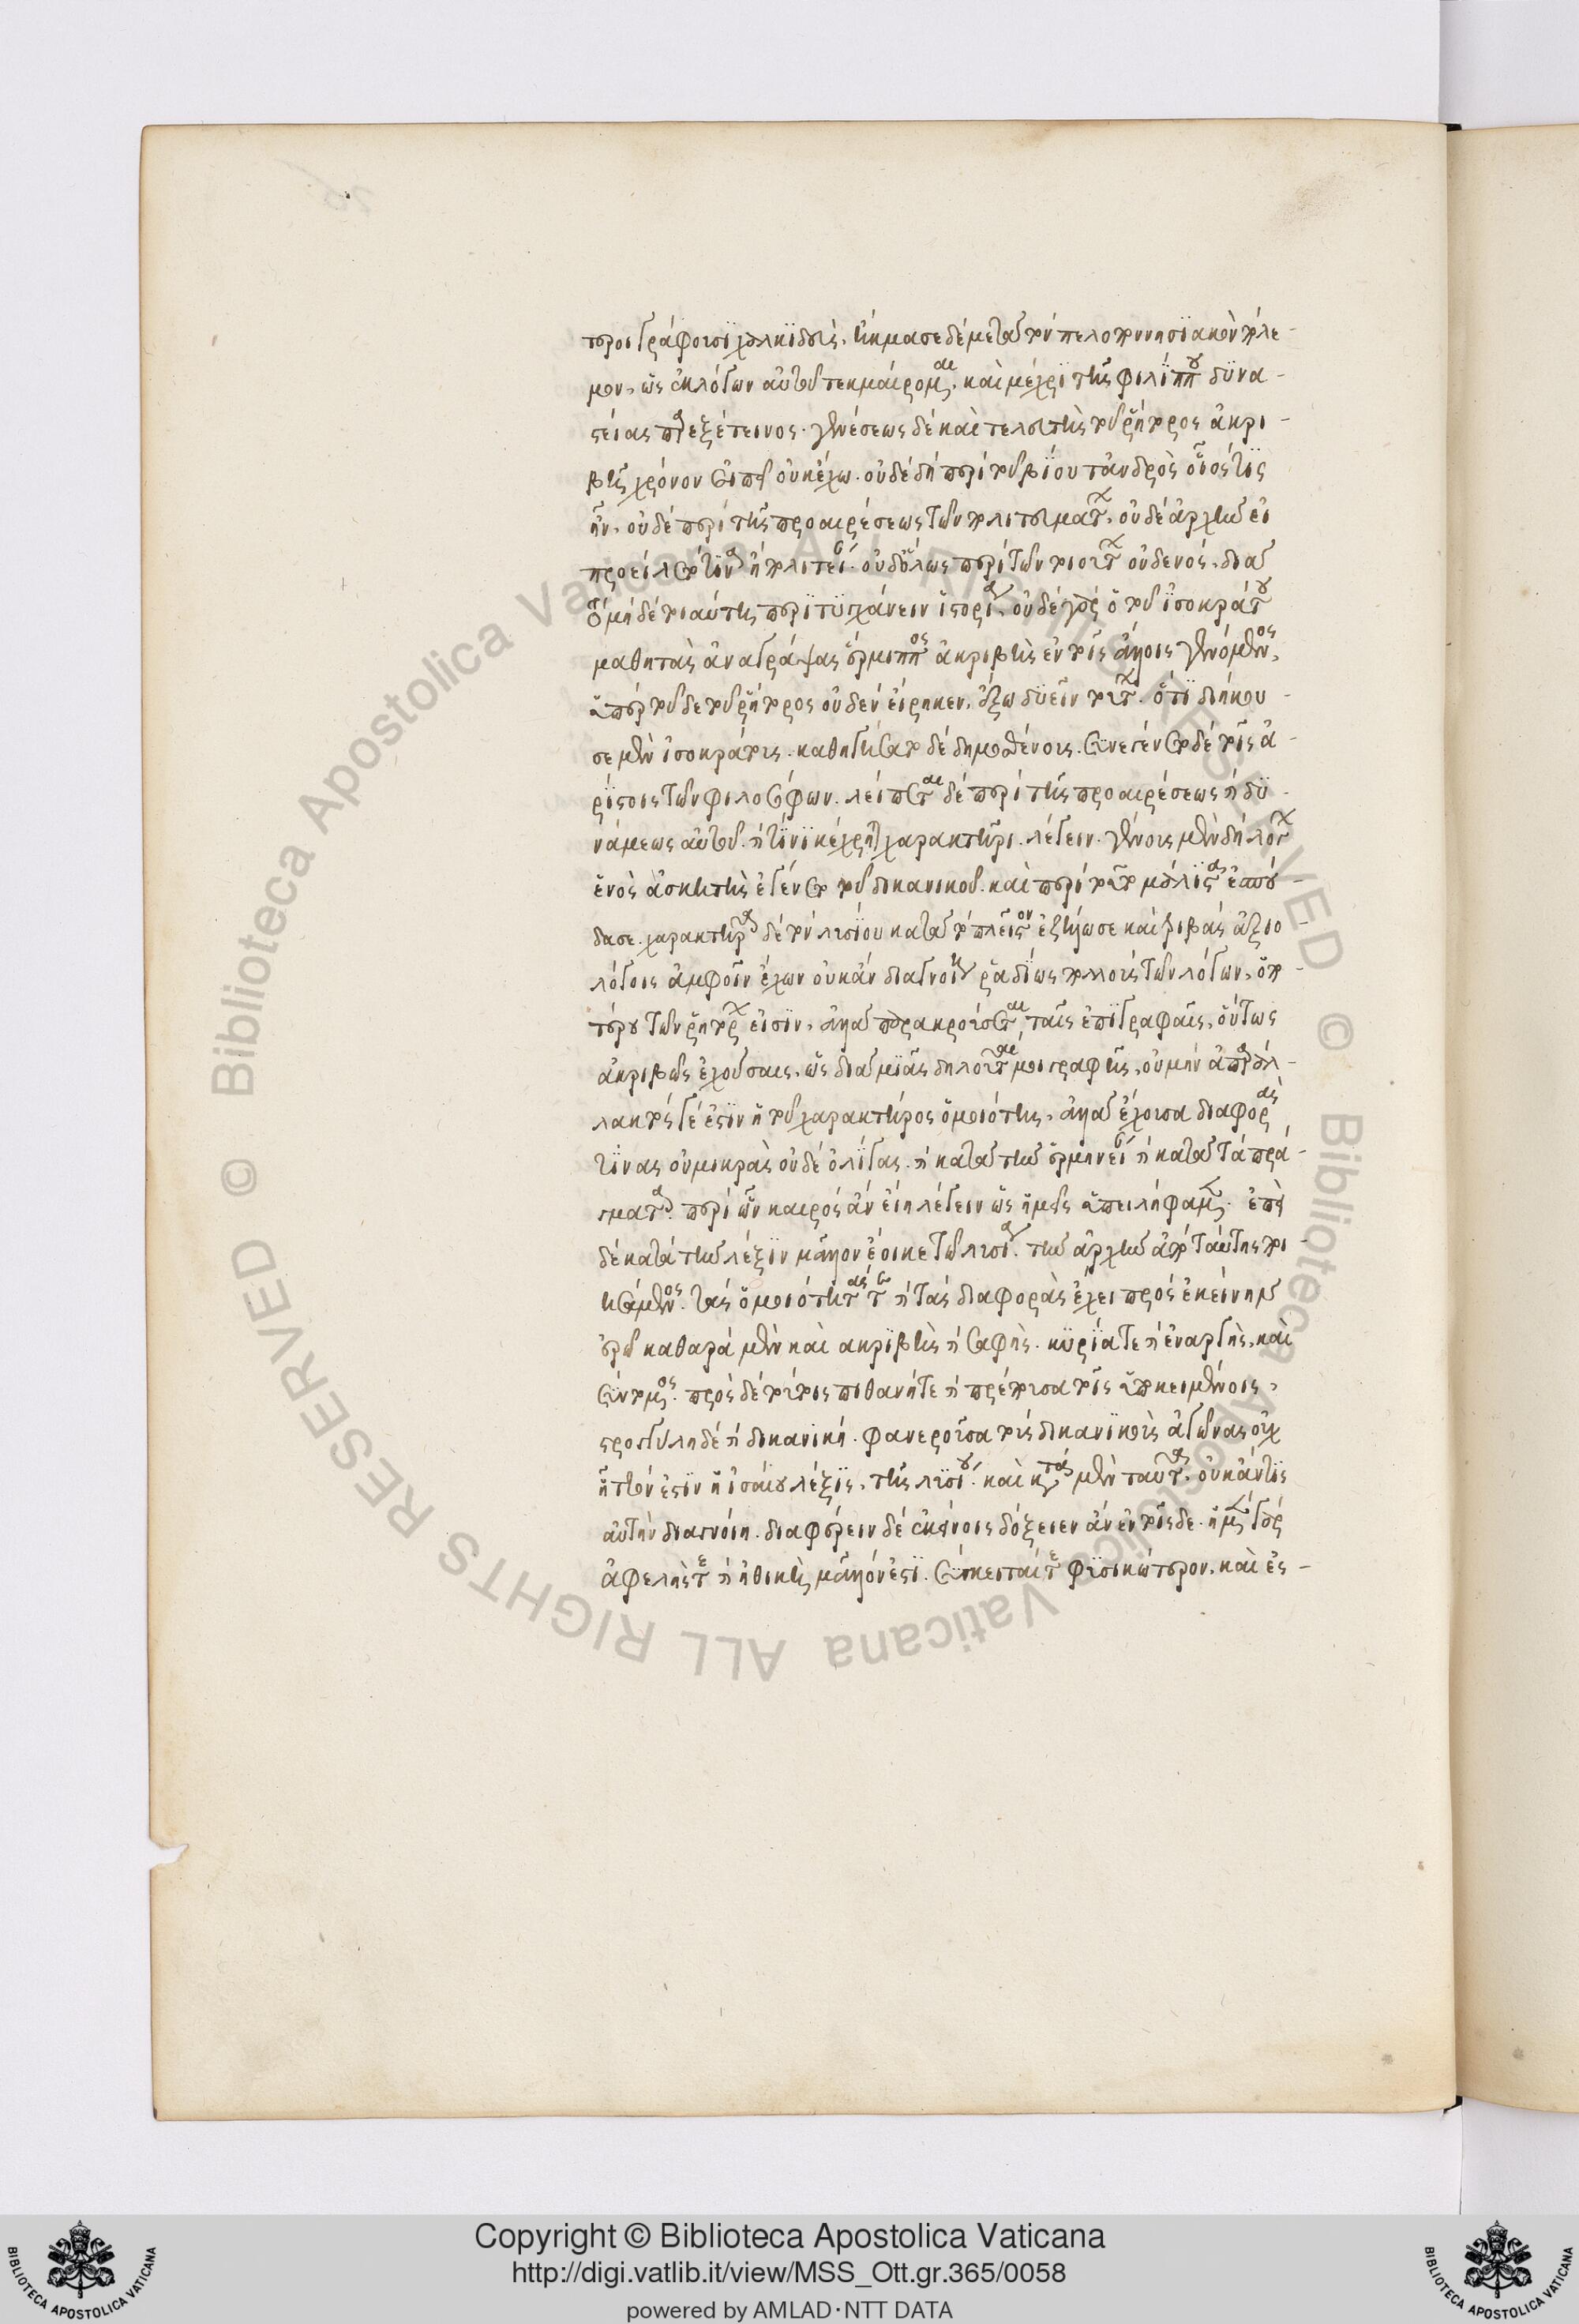 τεροι γράφουσϊ χαλκϊδεὺς. ἤκμασε δὲ μετὰ τὸν πελοποννησϊακὸν πόλε-
μον, ὡς ἐκ λόγων αὐτοῦ τεκμαίρομαι. καὶ μέχρϊ τῆς φιλίππου δυνα-
στείας παρεξέτεινος. γενέσεως δὲ καὶ τελευτῆς τοῦ ῥήτορος ἀκρι-
βῆ χρόνον εἰπεῖν οὐκ ἔχω. οὐδὲ δὴ περὶ τοῦ βίου τἀνδρὸς οἷός τις
ἦν. οὐδὲ περὶ τῆς προαιρέσεως τῶν πολιτευμάτων. οὐδὲ ἀρχὴν εἰ
προείλετό τινα ἢ πολιτείαν. οὐδόλως περὶ τῶν τοιούτων οὐδενὸς, διὰ
τὸ μηδὲ τοιαύτης περιτυγχάνειν ἱστορίας. οὐδὲ γὰρ ὁ τοὺς ἰσοκράτου
μαθητὰς ἀναγράψας ἕρμιππος ἀκριβὴς ἐν τοῖς ἄλλοις γενόμενος,
ὑπὲρ τοῦδε τοῦ ῥήτορος οὐδὲν εἴρηκεν, ἔξω δυεῖν τούτων. ὅτι διήκου-
σε μὲν ἰσοκράτους. καθηγήσατο δὲ δημοσθένους. συνεγένετο δὲ τοῖς ἀ-
ρίστοις τῶν φιλοσόφων. λείπεται δὲ περὶ τῆς προαιρέσεως καὶ δυ-
νάμεως αὐτοῦ. καὶ τίνι κέχρηται χαρακτῆρι. λέγειν. γένους μὲν δὴ λόγων
ἑνὸς ἀσκητὴς ἐγένετο τοῦ δικανικοῦ. καὶ περὶ τοῦτο μάλιστα ἐσπού-
δασε. χαρακτῆρα δὲ τὸν λυσίου κατὰ τὸ πλεῖστον ἐζήλωσε καὶ τριβὰς ἀξιο-
λόγους ἀμφοῖν ἔχων οὐκ ἂν διαγνοίη ῥᾳδίως πολλοὺς τῶν λόγων, ὁπο-
τέρου τῶν ῥητόρων εἰσὶν, ἀλλὰ παρακρούσεται ταῖς ἐπιγραφαῖς, οὕτως
ἀκριβῶς ἐχούσαις, ὡς διὰ μιᾶς δηλοῦταί μοι γραφῆς, οὐ μὴν ἀπαράλ-
λακτός γέ ἐστιν ἡ τοῦ χαρακτῆρος ὁμοιότης, ἀλλὰ ἔχουσα διαφορὰς
τινας οὐ μικρὰς οὐδὲ ὀλίγας. καὶ κατὰ τὴν ἑρμηνείαν καὶ κατὰ τὰ πρά-
γματα. περὶ ὧν καιρὸς ἂν εἴη λέγειν ὡς ἡμεῖς ὑπειλήφαμεν. ἐπεὶ
δὲ κατὰ τὴν λέξιν μᾶλλον ἔοικε τῷ λυσίᾳ. τὴν ἀρχὴν ἀπὸ ταύτης ποι-
ησάμενος. τὰς ὁμοιότητάς τε καὶ τὰς διαφορὰς ἔχει πρὸς ἐκείνην
ἐρῶ καθαρὰ μὲν καὶ ακριβὴς καὶ σαφὴς. κυρία τε καὶ ἐναργὴς, καὶ
σύντομος. πρὸς δὲ τούτοις πιθανή τε καὶ πρέπουσα τοῖς ὑποκειμένοις,
στρογγύλη δὲ καὶ δικανική. φανεροῦσα τοὺς δικανικοὺς ἀγῶνας οὐχ
ἧττόν ἐστιν ἡ ἰσαίου λέξις, τῆς λυσίου. καὶ κατὰ μὲν ταῦτα, οὐκ ἄν τις
αὐτὴν διαγνοίη. διαφέρειν δὲ ἐκείνης δόξειεν ἂν ἐν τοῖσδε. ἡ μὲν γὰρ
ἀφελής τε καὶ ἠθικὴ μᾶλλόν ἐστι. σύγκειταί τε φυσικώτερον, καὶ ἐσ-
Copyright © Biblioteca Apostolica Vaticana
http://digi.vatlib.it/view/MSS_Ott.gr.365/0058
powered by AMLAD·NTT DATA